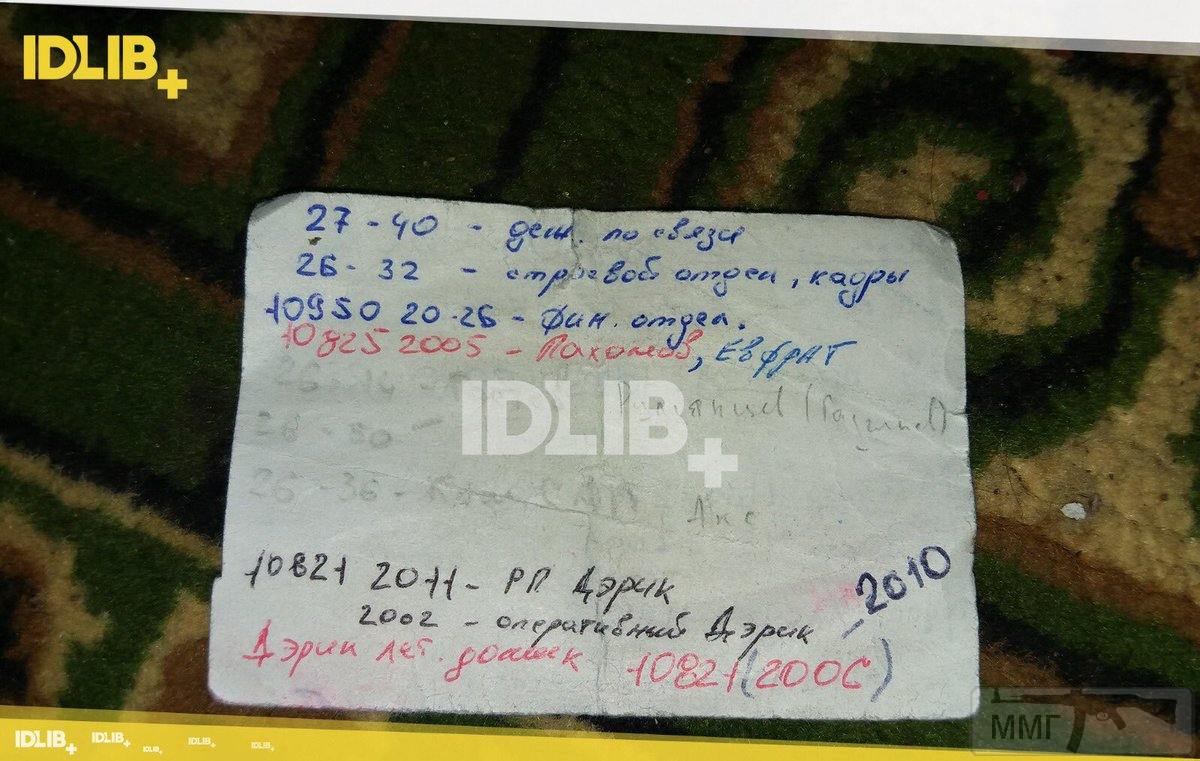 IDLIB+
27-40 - деж. по связи
26-32 - строевой отдел, кадры
10950 20-26 - фин. отдел.
10825 2005 - Пахомов, ЕВФРАТ
IDLIB+
26-36 -
10821 2011 - РП Дэрик
2010
2002 - оперативний Дэрик
Дэрик лет. домик 10821 (2006)
IDLIB+ IDLIB+ IDLIB+ IDLIB+ IDLIB+
ММГ